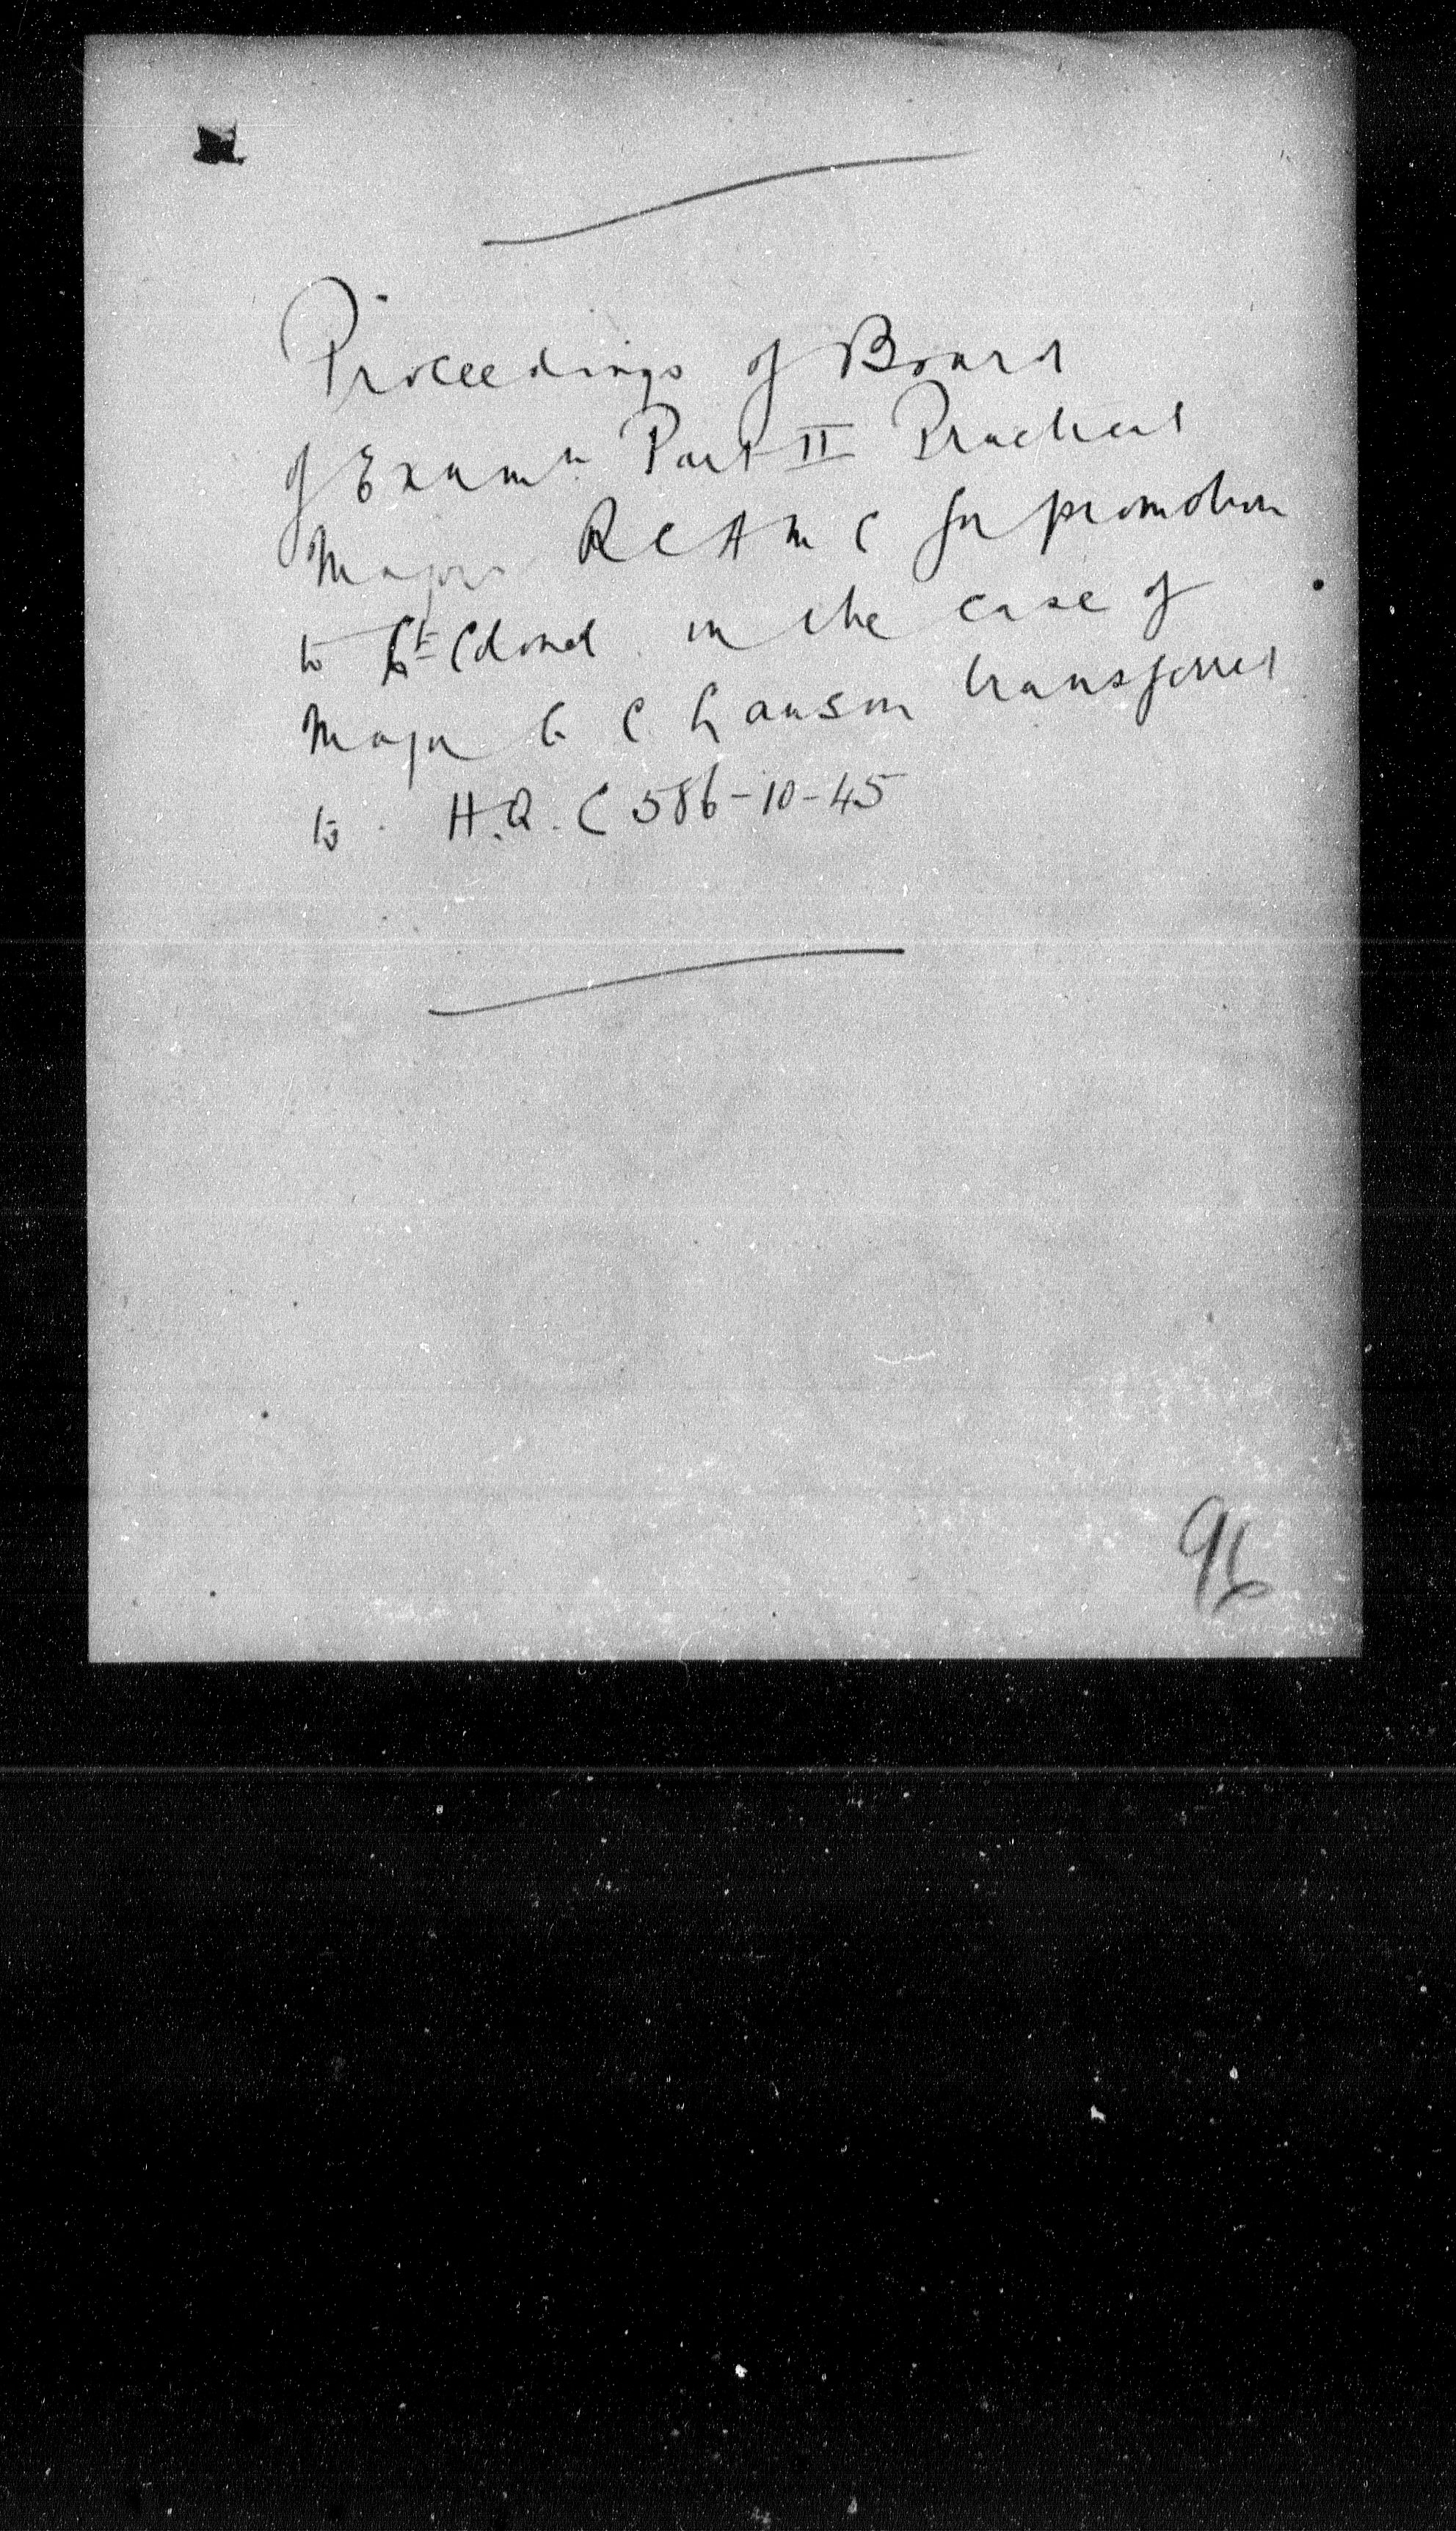 Proceedings of Board
of Examn Part II Practical
Majors R C A M C for promotion
to Lt Colonel in the case of
Major G C Lawson transferred
to H.Q. C 586-10-45
96